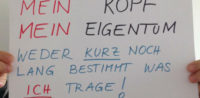 MEIN KOPF
MEIN EIGENTUM
WEDER KURZ NOCH
LANG BESTIMMT WAS
ICH TRAGE!